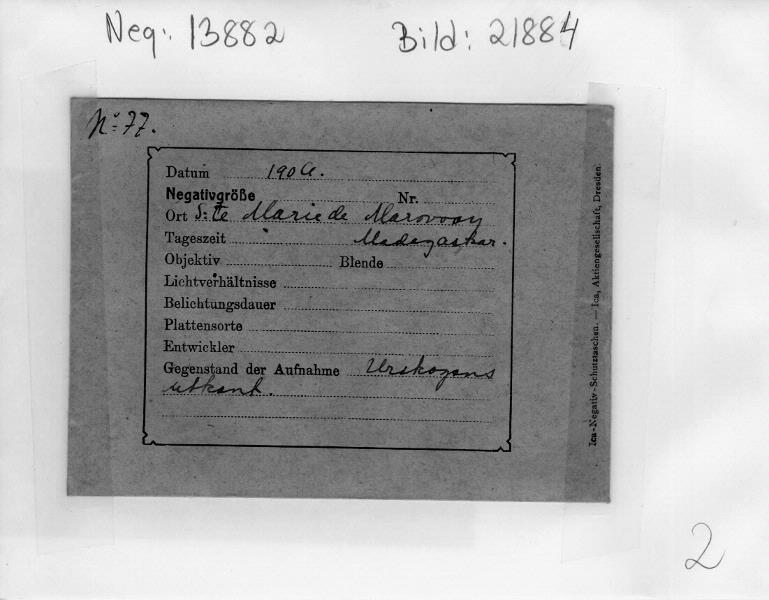 Neg: 13882 Bild: 21884
No: 77.
Datum 1906.
Negativgröße Nr.
Ort S:te Marie de Marovoay
Tageszeit Madagaskar.
Objektiv Blende
Lichtverhältnisse
Belichtungsdauer
Plattensorte
Entwickler
Gegenstand der Aufnahme Urskogens
utkant.
Ica-Negativ-Schutztaschen. — Ica, Aktiengesellschaft, Dresden.
2